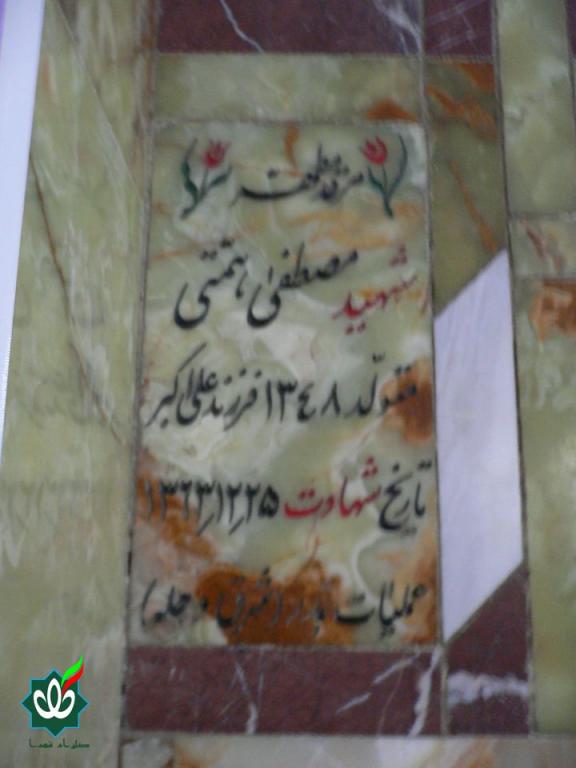 مرقد مطهر
شهید مصطفیٰ همتی
متولّد ۱۳٤۸ فرزند علی اکبر
تاریخ شهادت ۱۳٦۳٫۱۲٫۲۵
عملیات بدر (شرق دجله)